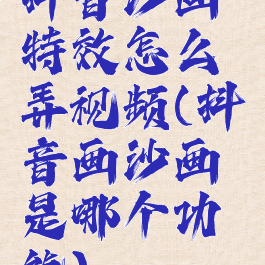 抖音沙画
特效怎么
弄视频(抖
音画沙画
是哪个功
能)